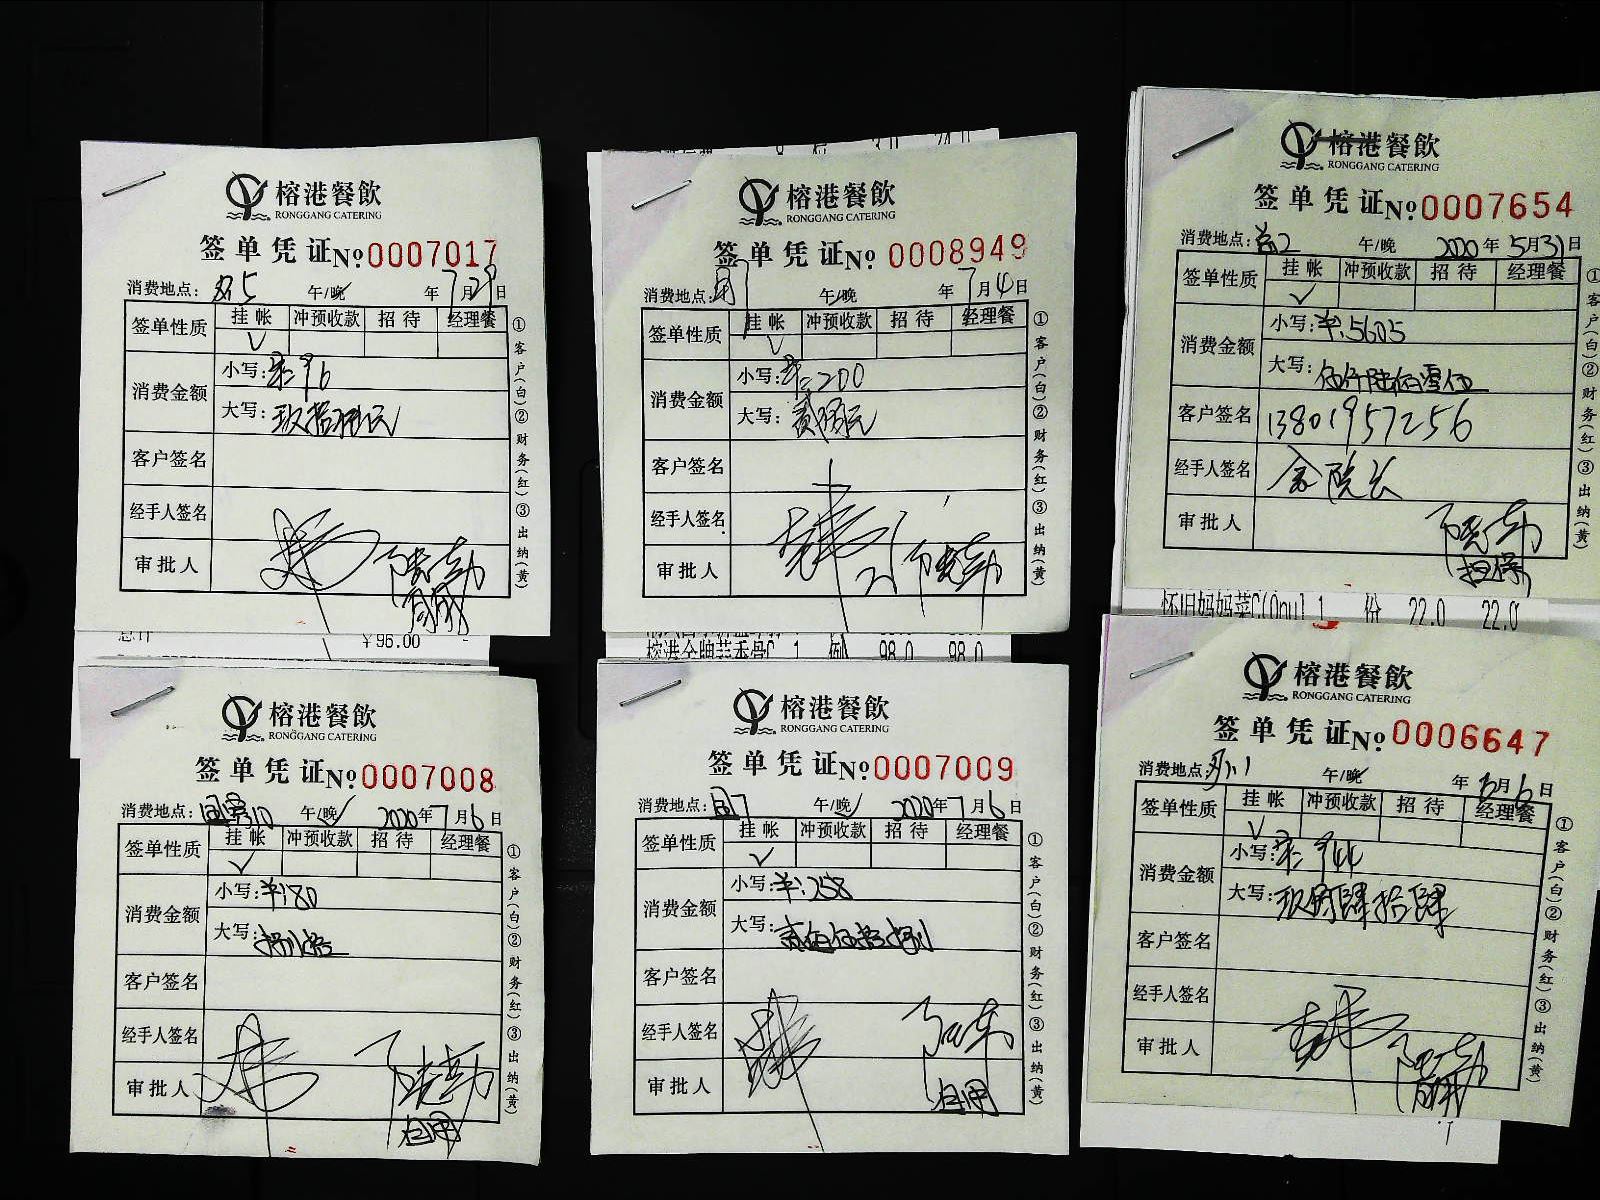 榕港餐飲
RONGGANG CATERING
签单凭证No.0007017
消费地点: 5 午/晚 年7月29日
签单性质 挂帐 冲预收款 招待 经理餐
√
消费金额
小写:¥:96
大写:玖拾陆元
客户签名
经手人签名
审批人
①客户(白)②财务(红)③出纳(黄)
¥96.00
榕港餐飲
RONGGANG CATERING
签单凭证No.0008949
消费地点: 午/晚 年7月4日
签单性质 挂帐 冲预收款 招待 经理餐
√
消费金额
小写:¥:200
大写:贰佰元
客户签名
经手人签名
审批人
①客户(白)②财务(红)③出纳(黄)
1 例 98.0 98.0
榕港餐飲
RONGGANG CATERING
签单凭证No.0007654
消费地点: 2 午/晚 2020年5月31日
签单性质 挂帐 冲预收款 招待 经理餐
√
消费金额
小写:¥:5605
大写:伍仟陆佰零伍
客户签名 13801957256
经手人签名 金院长
审批人
担保
①客户(白)②财务(红)③出纳(黄)
怀旧妈妈菜 1 份 22.0 22.0
榕港餐飲
RONGGANG CATERING
签单凭证No.0007008
消费地点: 310 午/晚√ 2020年7月6日
签单性质 挂帐 冲预收款 招待 经理餐
√
消费金额
小写:¥:180
大写:
客户签名
经手人签名
审批人
自用
①客户(白)②财务(红)③出纳(黄)
榕港餐飲
RONGGANG CATERING
签单凭证No.0007009
消费地点: 7 午/晚√ 2020年7月6日
签单性质 挂帐 冲预收款 招待 经理餐
√
消费金额
小写:¥:258
大写:贰佰伍拾捌
客户签名
经手人签名
审批人
自用
①客户(白)②财务(红)③出纳(黄)
榕港餐飲
RONGGANG CATERING
签单凭证No.0006647
消费地点: 午/晚 年 月6日
签单性质 挂帐 冲预收款 招待 经理餐
√
消费金额
小写:¥:944
大写:玖佰肆拾肆
客户签名
经手人签名
审批人
①客户(白)②财务(红)③出纳(黄)